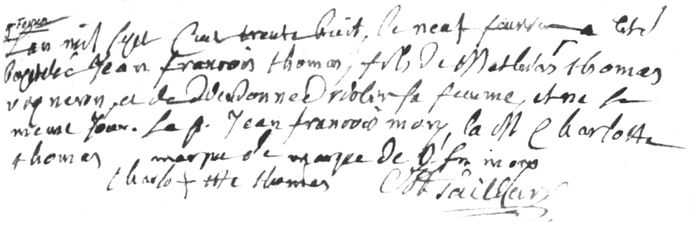 L'an mil sept cent trente huit, le neuf fevrier a eté
baptisé Jean francois thomas, fils de Mathias thomas
vigneron, et de dieudonnée sa femme, et né le
meme jour. Le p. Jean francois mory, la M Charlotte
thomas marque de marque de J fr mory
Charlo + tte thomas